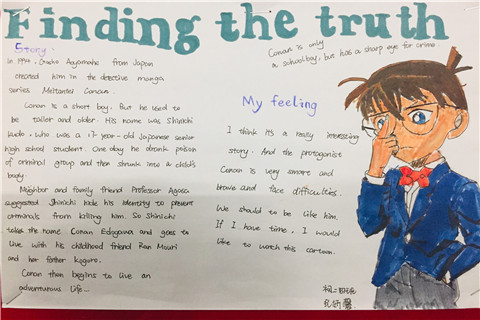 Finding the truth
Story:
In 1994, Gosho Aoyamahe from Japan
created him in the detective manga
series Meitantei Conan.
Conan is a short boy. But he used to
be taller and older. His name was Shinichi
kudo, who was a 17-year-old Japanese senior
high school student. One day he drank poison
of criminal group and then shrunk into a child's
body.
Neighbor and family friend Professor Agasa
suggested Shinichi hide his identity to prevent
criminals from killing him. So Shinichi
takes the name Conan Edogawa and goes to
live with his childhood friend Ran Mouri
and her father Kogoro.
Conan then begins to live an
adventurous life...
Conan is only
a schoolboy, but has a sharp eye for crime.
My feeling
I think it's a really interesting
story. And the protagonist
Conan is very smart and
brave and face difficulties.
We should to be like him.
If I have time, I would
like to watch this cartoon.